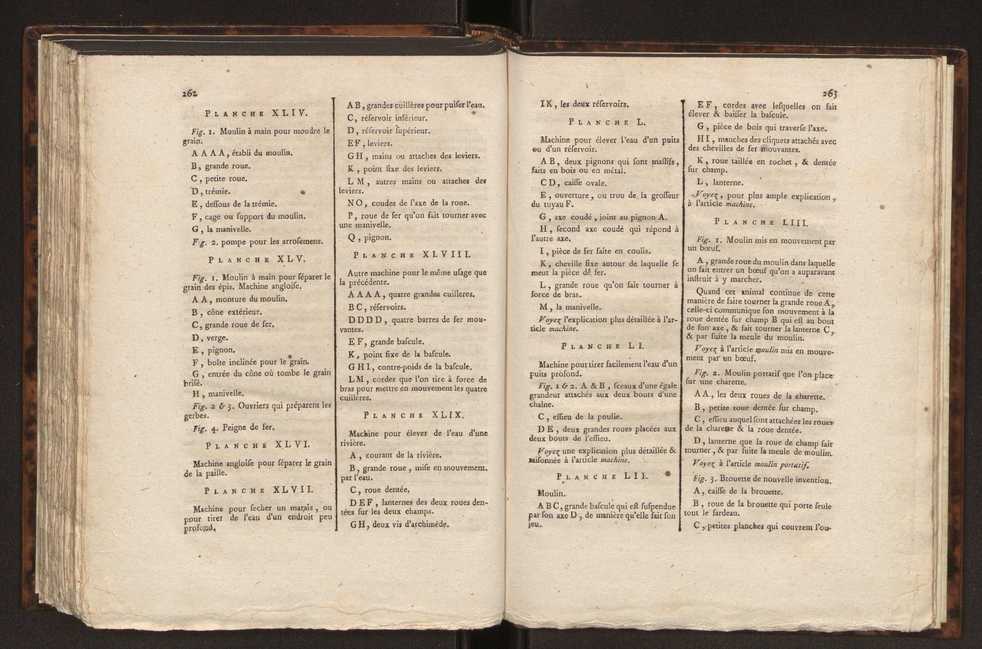 262
PLANCHE XLIV.
Fig. 1. Moulin à main pour moudre le
grain.
A A A A, établi du moulin.
B, grande roue.
C, petite roue.
D, trémie.
E, deſſous de la trémie.
F, cage ou ſupport du moulin.
G, la manivelle.
Fig. 2. pompe pour les arroſemens.
PLANCHE XLV.
Fig. 1. Moulin à main pour ſéparer le
grain des épis. Machine angloiſe.
A A, monture du moulin.
B, cône extérieur.
C, grande roue de fer.
D, verge.
E, pignon.
F, boîte inclinée pour le grain.
G, entrée du cône où tombe le grain
briſé.
H, manivelle.
Fig. 2 & 3. Ouvriers qui préparent les
gerbes.
Fig. 4. Peigne de fer.
PLANCHE XLVI.
Machine angloiſe pour ſéparer le grain
de la paille.
PLANCHE XLVII.
Machine pour ſecher un marais, ou
pour tirer de l'eau d'un endroit peu
profond.
A B, grandes cuillères pour puiſer l'eau.
C, réſervoir inférieur.
D, réſervoir ſupérieur.
E F, leviers.
G H, mains ou attaches des leviers.
K, point fixe des leviers.
L M, autres mains ou attaches des
leviers.
N O, coudes de l'axe de la roue.
P, roue de fer qu'on fait tourner avec
une manivelle.
Q, pignon.
PLANCHE XLVIII.
Autre machine pour le même uſage que
la précédente.
A A A A, quatre grandes cuilleres.
B C, réſervoirs.
D D D D, quatre barres de fer mou-
vantes.
E F, grande baſcule.
K, point fixe de la baſcule.
G H I, contre-poids de la baſcule.
L M, cordes que l'on tire à force de
bras pour mettre en mouvement les quatre
cuilleres.
PLANCHE XLIX.
Machine pour élever de l'eau d'une
rivière.
A, courant de la rivière.
B, grande roue, miſe en mouvement
par l'eau.
C, roue dentée.
D E F, lanternes des deux roues den-
tées ſur les deux champs.
G H, deux vis d'archimède.
263
I K, les deux réſervoirs.
PLANCHE L.
Machine pour élever l'eau d'un puits
ou d'un réſervoir.
A B, deux pignons qui ſont maſſifs,
faits en bois ou en métal.
C D, caiſſe ovale.
E, ouverture, ou trou de la groſſeur
du tuyau F.
G, axe coudé, joint au pignon A.
H, ſecond axe coudé qui répond à
l'autre axe.
I, pièce de fer faite en coulis.
K, cheville fixe autour de laquelle ſe
meut la pièce de fer.
L, grande roue qu'on fait tourner à
force de bras.
M, la manivelle.
Voyez l'explication plus détaillée à l'ar-
ticle machine.
PLANCHE LI.
Machine pour tirer facilement l'eau d'un
puits profond.
Fig. 1 & 2. A & B, ſceaux d'une égale
grandeur attachés aux deux bouts d'une
chaîne.
C, eſſieu de la poulie.
D E, deux grandes roues placées aux
deux bouts de l'eſſieu.
Voyez une explication plus détaillée &
raiſonnée à l'article machine.
PLANCHE LII.
Moulin.
A B C, grande baſcule qui eſt ſuſpendue
par ſon axe D, de manière qu'elle fait ſon
jeu.
E F, cordes avec leſquelles on fait
élever & baiſſer la baſcule.
G, pièce de bois qui traverſe l'axe.
H I, manches des cliquets attachés avec
des chevilles de fer mouvantes.
K, roue taillée en rochet, & dentée
ſur champ.
L, lanterne.
Voyez, pour plus ample explication,
à l'article machine.
PLANCHE LIII.
Fig. 1. Moulin mis en mouvement par
un bœuf.
A, grande roue du moulin dans laquelle
on fait entrer un bœuf qu'on a auparavant
inſtruit à y marcher.
Quand cet animal continue de cette
manière de faire tourner la grande roue A,
celle-ci communique ſon mouvement à la
roue dentée ſur champ B qui eſt au bout
de ſon axe, & fait tourner la lanterne C,
& par ſuite la meule du moulin.
Voyez à l'article moulin mis en mouve-
ment par un bœuf.
Fig. 2. Moulin portatif que l'on place
ſur une charette.
A A, les deux roues de la charette.
B, petite roue dentée ſur champ.
C, eſſieu auquel ſont attachées les roues
de la charette & la roue dentée.
D, lanterne que la roue de champ fait
tourner, & par ſuite la meule de moulin.
Voyez à l'article moulin portatif.
Fig. 3. Brouette de nouvelle invention.
A, caiſſe de la brouette.
B, roue de la brouette qui porte ſeule
tout le fardeau.
C, petites planches qui couvrent l'ou-